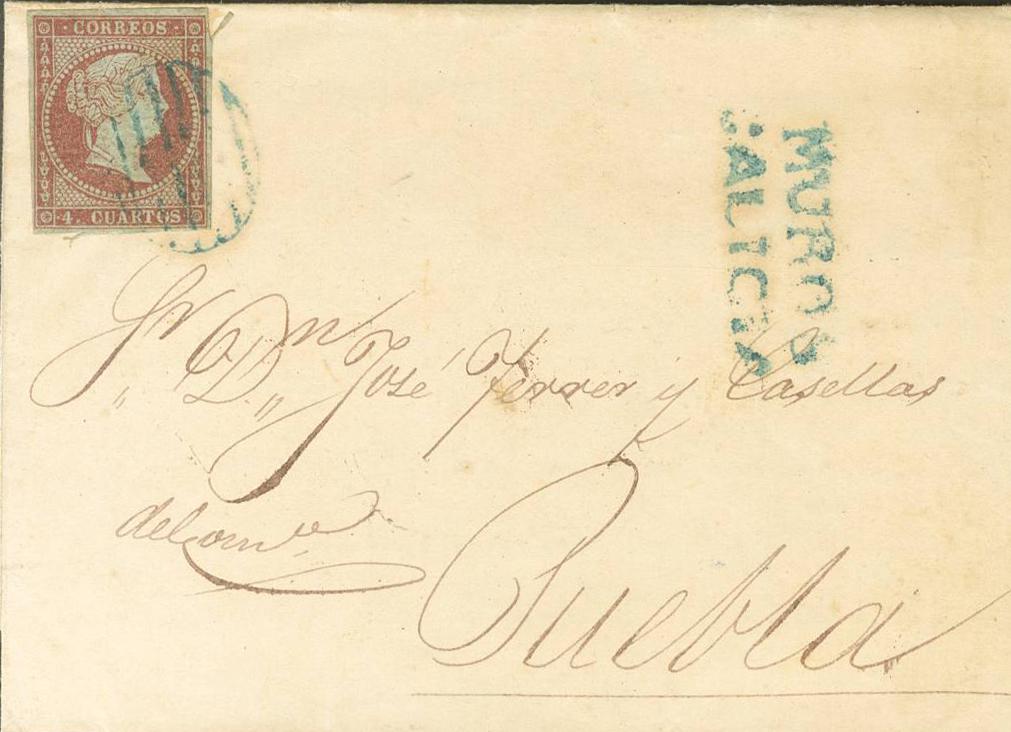 CORREOS
4. CUARTOS
MUROS
GALICIA
Sr. Dn. José Ferrer y Casellas
del como.
Puebla